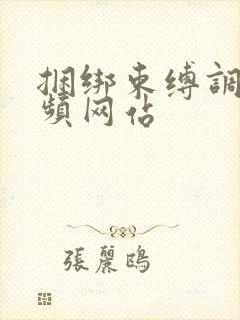 捆绑束缚調
頻网佔
張麗鴎